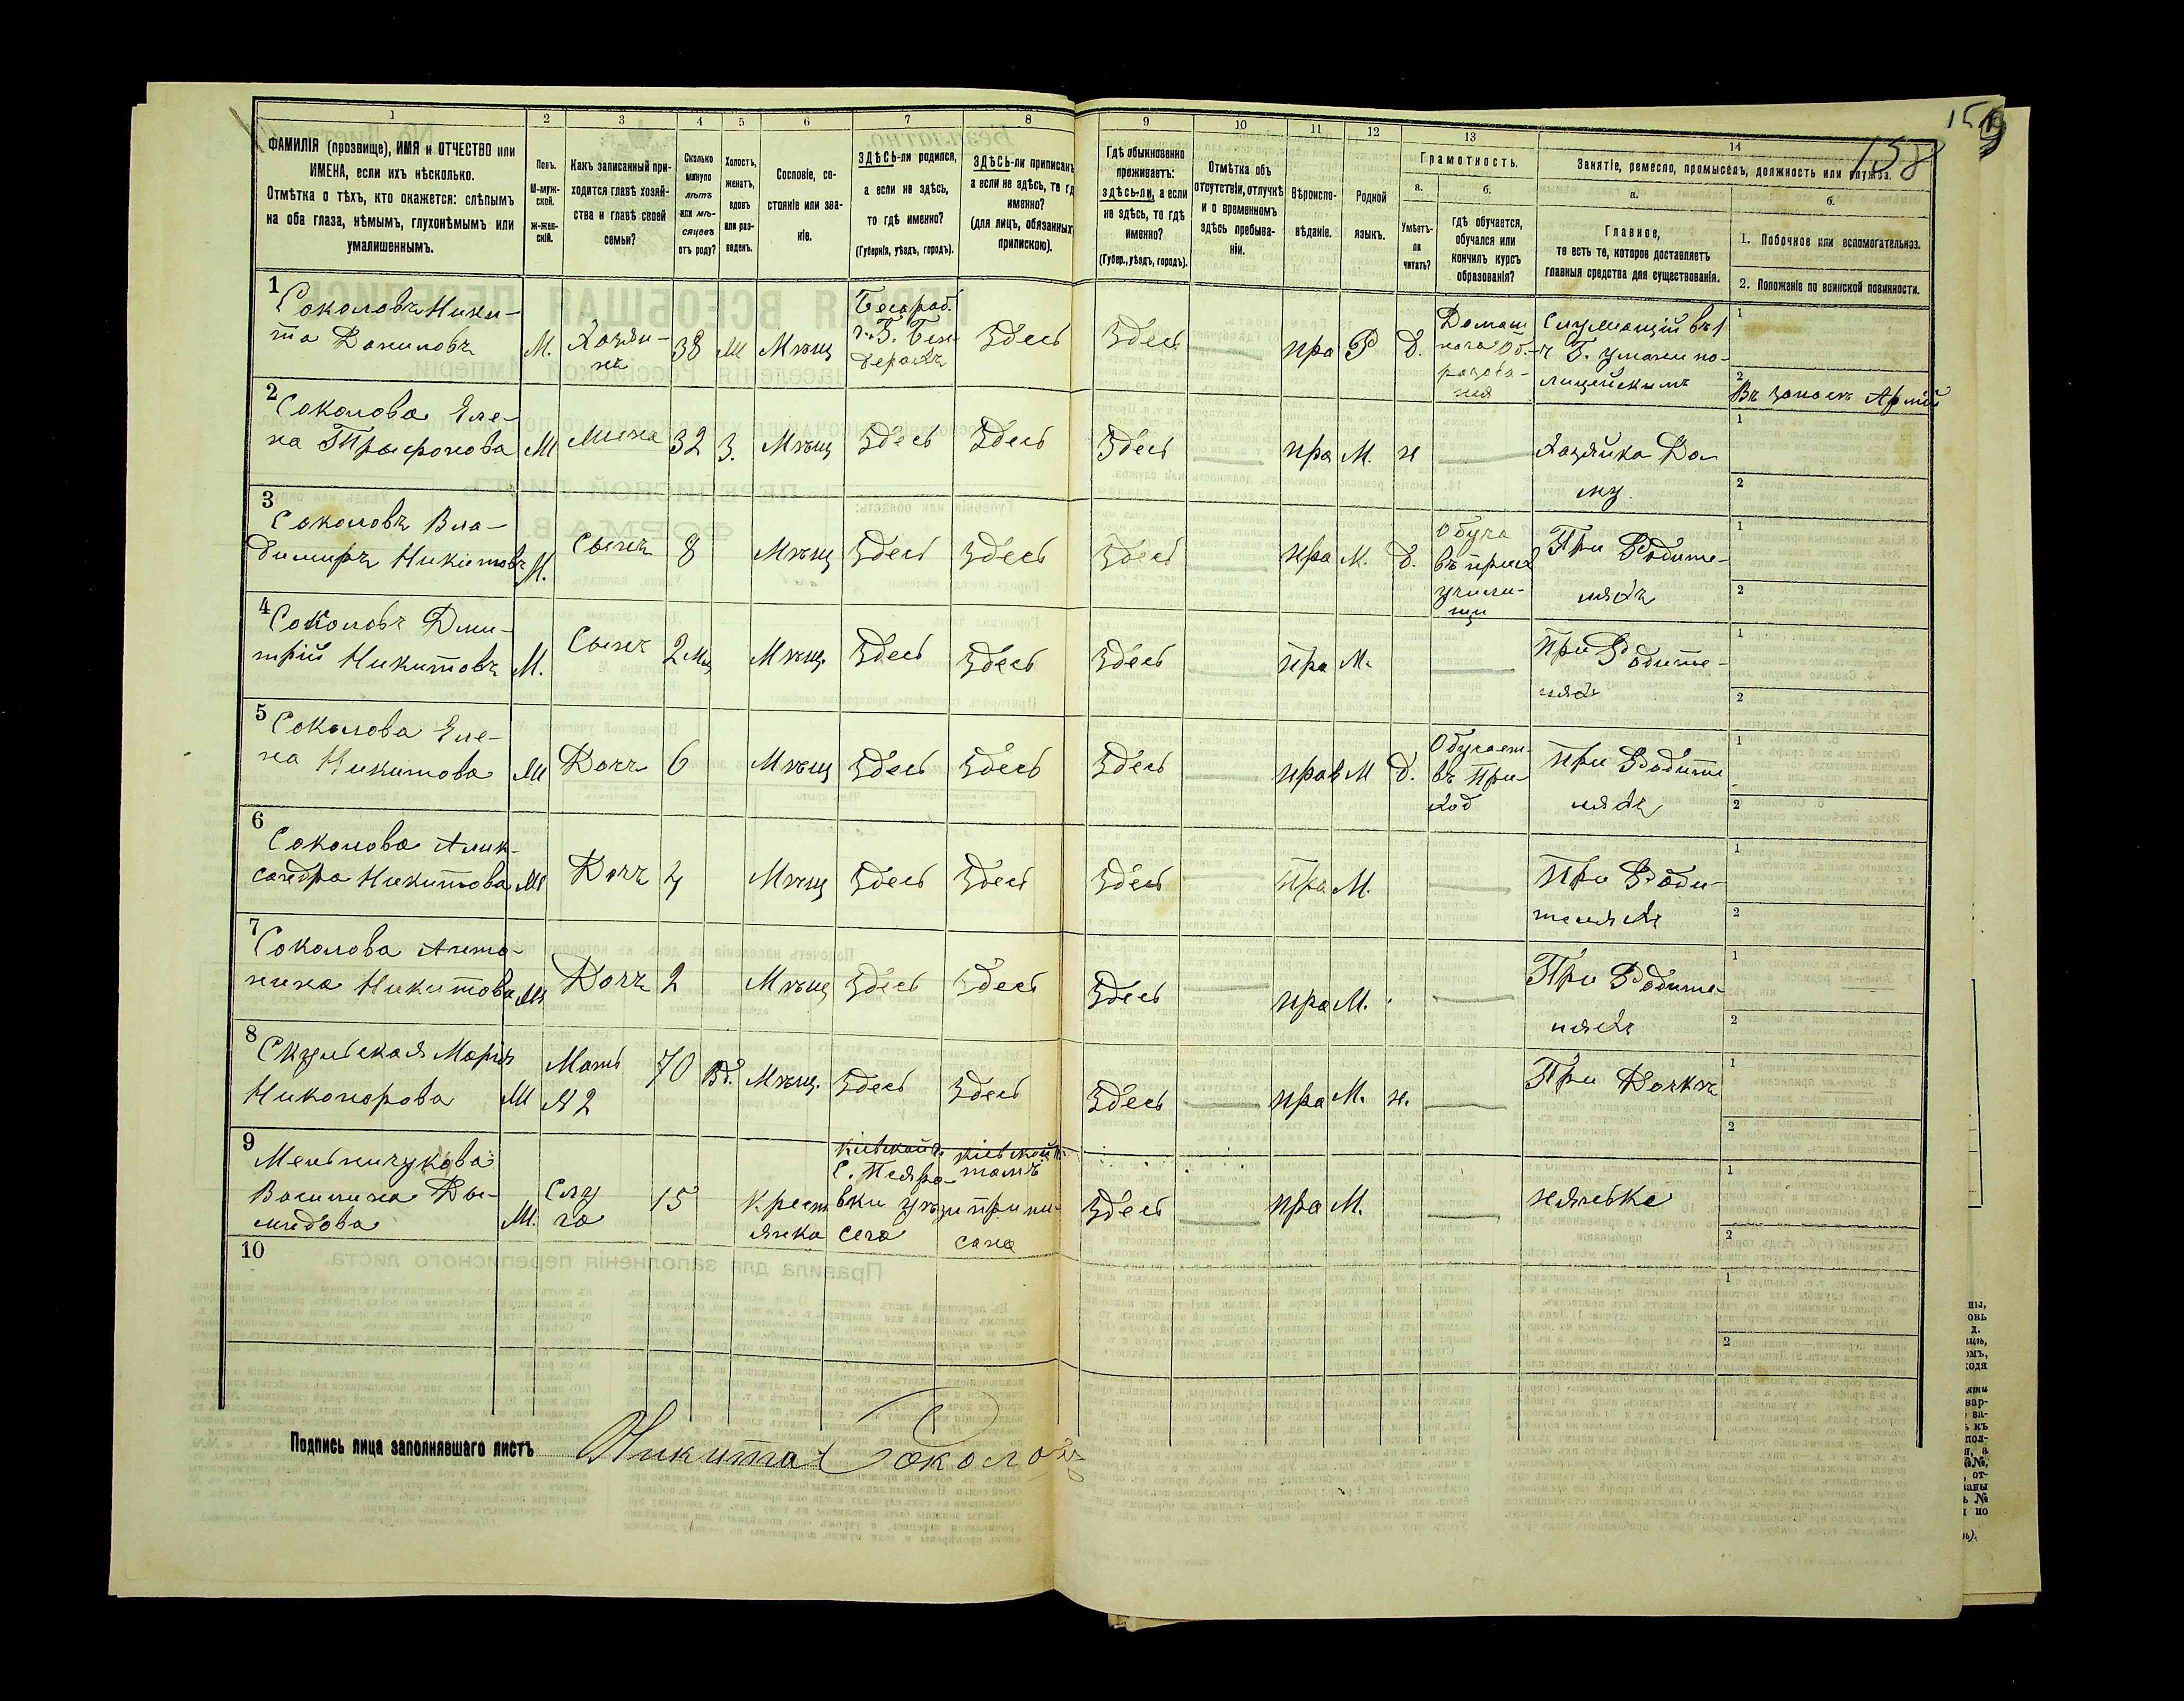 158
1
2
3
4
5
6
7
8
9
10
11
12
13
14
ФАМИЛІЯ (прозвище), ИМЯ и ОТЧЕСТВО или
ИМЕНА, если ихъ нѣсколько.
Отмѣтка о тѣхъ, кто окажется: слѣпымъ
на оба глаза, нѣмымъ, глухонѣмымъ или
умалишеннымъ.
Полъ.
М-муж-
ской.
Ж-жен-
скій.
Какъ записанный при-
ходится главѣ хозяй-
ства и главѣ своей
семьи?
Сколько
минуло
лѣтъ
или мѣ-
сяцевъ
отъ роду?
Холостъ,
женатъ,
вдовъ
или раз-
веденъ.
Сословіе, со-
стояніе или зва-
ніе.
ЗДѢСЬ-ли родился,
а если не здѣсь,
то гдѣ именно?
(Губернія, уѣздъ, городъ).
ЗДѢСЬ-ли приписанъ,
а если не здѣсь, то гдѣ
именно?
(для лицъ, обязанныхъ
припискою).
Гдѣ обыкновенно
проживаетъ:
здѣсь-ли, а если
не здѣсь, то гдѣ
именно?
(Губер., уѣздъ, городъ).
Отмѣтка объ
отсутствіи, отлучкѣ
и о временномъ
здѣсь пребыва-
ніи.
Вѣроиспо-
вѣданіе.
Родной
языкъ.
Грамотность.
а.
Умѣетъ-
ли
читать?
б.
гдѣ обучается,
обучался или
кончилъ курсъ
образованія?
Занятіе, ремесло, промыселъ, должность или служба.
а.
Главное,
то есть то, которое доставляетъ
главныя средства для существованія.
б.
1. Побочное или вспомогательноэ.
2. Положеніе по воинской повинности.
1
Соколовъ Ники-
та Даниловъ
М.
Хозяи-
нъ
38
Ж
Мѣщ
Бесараб.
г. Г. Бен-
дерахъ
Здесь
Здесь
пра
Р
д.
Домаш
него Об-
разова-
ния
Служащій въ
г. Умани по-
лицейскимъ
1
2
Въ запасѣ Армiи
2
Соколова Еле-
на Трыфонова
Ж
Жена
32
З.
Мѣщ
Здесь
Здесь
Здесь
пра
М.
н
Хазяйка До-
му
1
2
3
Соколовъ Вла-
димиръ Никитовъ
М.
Сынъ
8
Мѣщ
Здесь
Здесь
Здесь
пра
М.
д.
Обуча
въ прих
учили-
щи
При Родите-
ляхъ
1
2
4
Соколовъ Дми-
трій Никитовъ
М.
Сынъ
2 мц
Мѣщ.
Здесь
Здесь
Здесь
пра
М.
при Родите-
лях
1
2
5
Соколова Еле-
на Никитова
Ж
Дочь
6
Мѣщ
Здесь
Здесь
Здесь
прав
М
д.
Обучает
въ При-
ход
При Родите
ляхъ
1
2
6
Соколова Алик-
сандра Никитова
Ж
Дочь
4
Мѣщ
Здесь
Здесь
Здесь
пра
М.
При Роди-
теляхъ
1
2
7
Соколова Анто-
нина Никитова
Ж
Дочь
2
Мѣщ
Здесь
Здесь
Здесь
пра
М.
При Родите-
ляхъ
1
2
8
Скульская Марія
Никонорова
Ж
Мать
Я 2
70
Вд.
Мѣщ.
Здесь
Здесь
Здесь
пра
М.
н.
При Дочкѣ
1
2
9
Мельничукова
Василина Ды-
мидова
Ж.
Слу
га
15
Крест
янка
Здесь
пра
М.
нянька
1
2
10
1
2
Подпись лица заполнявшаго листъ
Никита Соколовъ